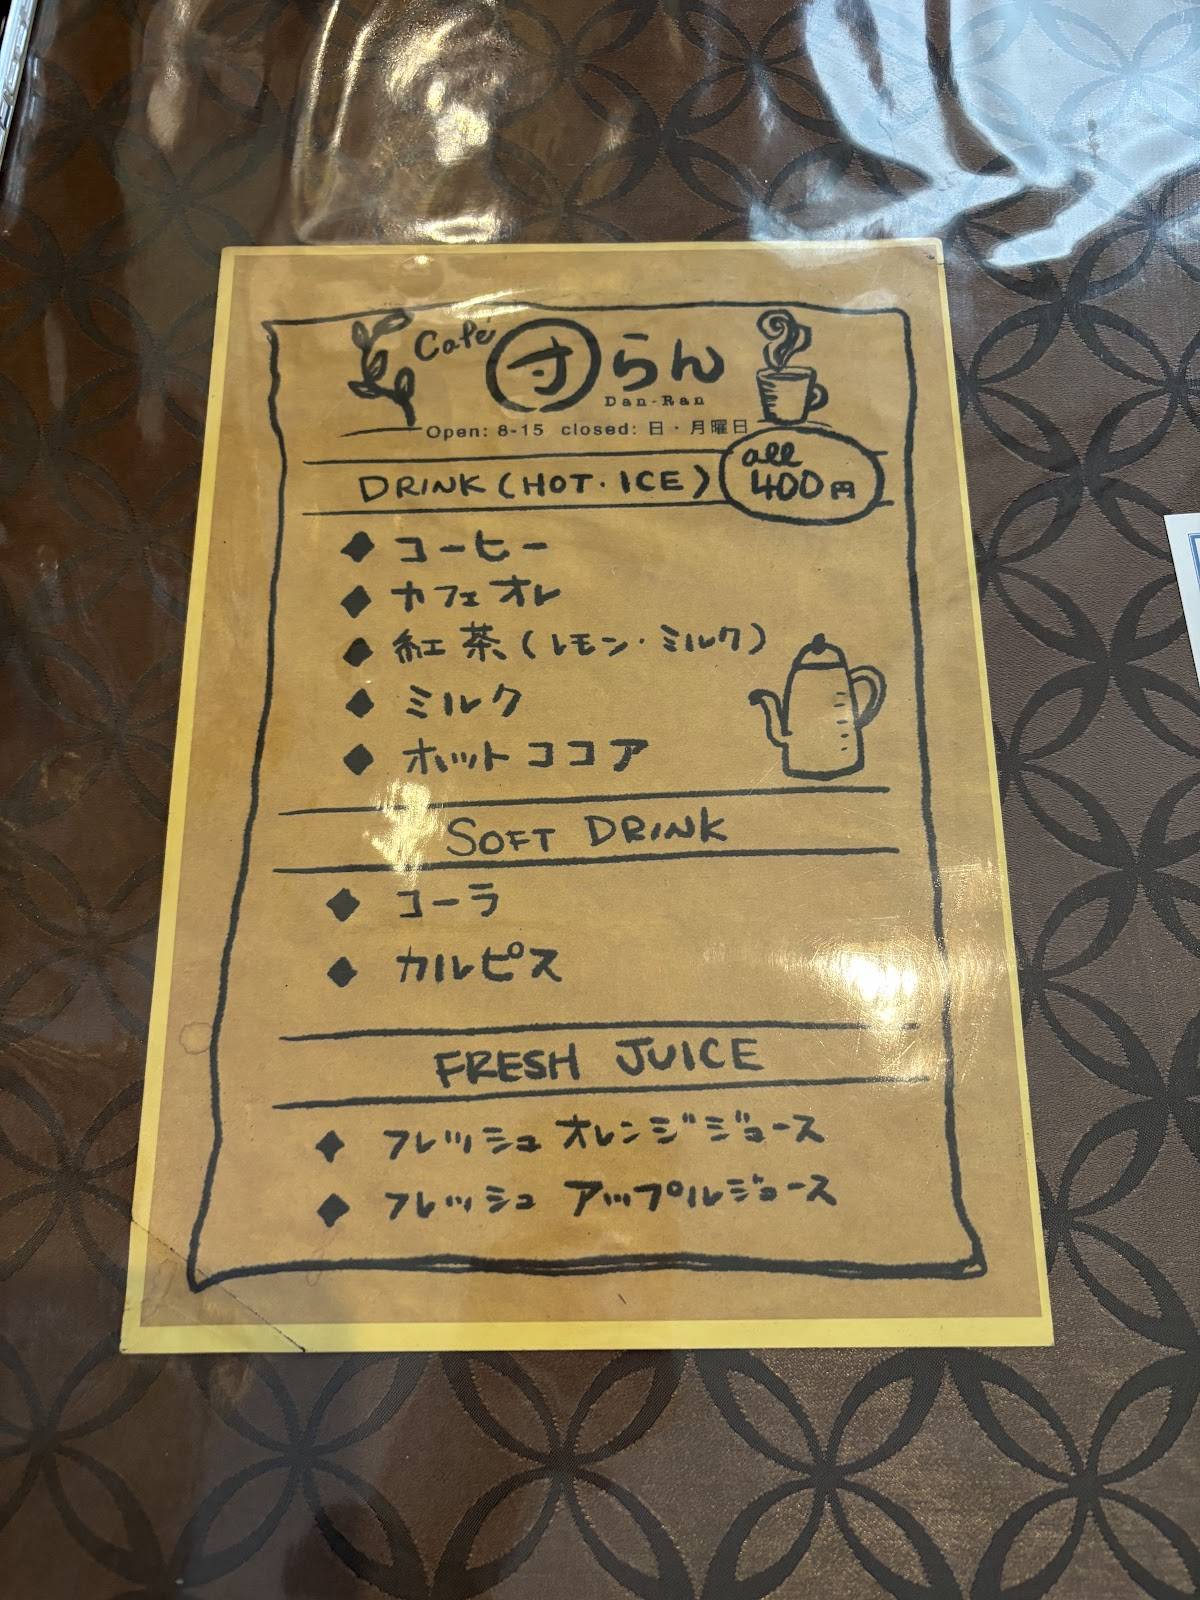 Café 団らん
Dan-Ran
Open: 8-15 closed: 日・月曜日
DRINK (HOT・ICE)
all
400円
コーヒー
カフェオレ
紅茶(レモン・ミルク)
ミルク
ホットココア
SOFT DRINK
コーラ
カルピス
FRESH JUICE
フレッシュ オレンジジュース
フレッシュ アップルジュース